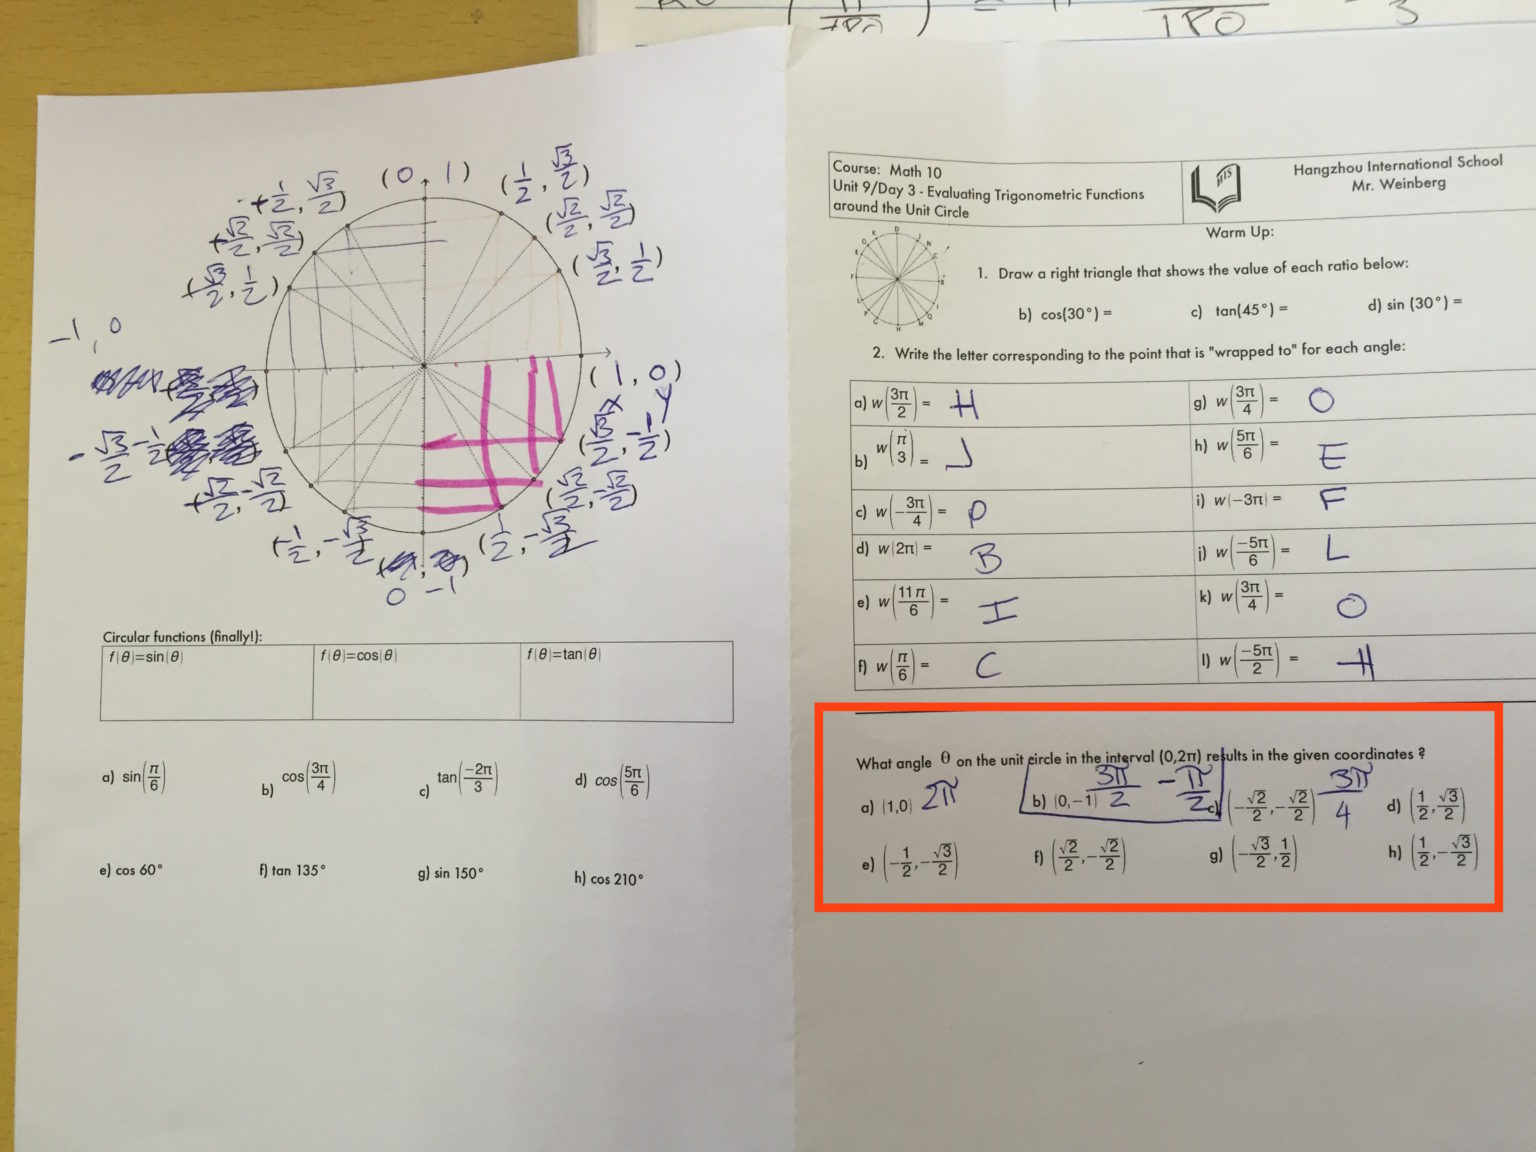 180 = π 180 3
(0, 1)
(1/2, √3/2)
(√2/2, √2/2)
(√3/2, 1/2)
(1, 0)
x y
(√3/2, -1/2)
(√2/2, -√2/2)
(1/2, -√3/2)
0 -1
(-1/2, -√3/2)
(-√2/2, -√2/2)
-√3/2 -1/2
-1, 0
(-√3/2, 1/2)
(-√2/2, √2/2)
-1/2, √3/2)
Circular functions (finally!):
f(θ)=sin(θ) f(θ)=cos(θ) f(θ)=tan(θ)
a) sin(π/6) b) cos(3π/4) c) tan(-2π/3) d) cos(5π/6)
e) cos 60° f) tan 135° g) sin 150° h) cos 210°
Course: Math 10
Unit 9/Day 3 - Evaluating Trigonometric Functions
around the Unit Circle
HIS
Hangzhou International School
Mr. Weinberg
Warm Up:
1. Draw a right triangle that shows the value of each ratio below:
b) cos(30°) = c) tan(45°) = d) sin (30°) =
2. Write the letter corresponding to the point that is "wrapped to" for each angle:
a) w(3π/2) = H g) w(3π/4) = O
b) w(π/3) = J h) w(5π/6) = E
c) w(-3π/4) = P i) w(-3π) = F
d) w(2π) = B j) w(-5π/6) = L
e) w(11π/6) = I k) w(3π/4) = O
f) w(π/6) = C l) w(-5π/2) = H
What angle θ on the unit circle in the interval (0,2π) results in the given coordinates ?
a) (1,0) 2π b) (0,-1) 3π/2 -π/2 c) (-√2/2,-√2/2) 3π/4 d) (1/2,√3/2)
e) (-1/2,-√3/2) f) (√2/2,-√2/2) g) (-√3/2,1/2) h) (1/2,-√3/2)